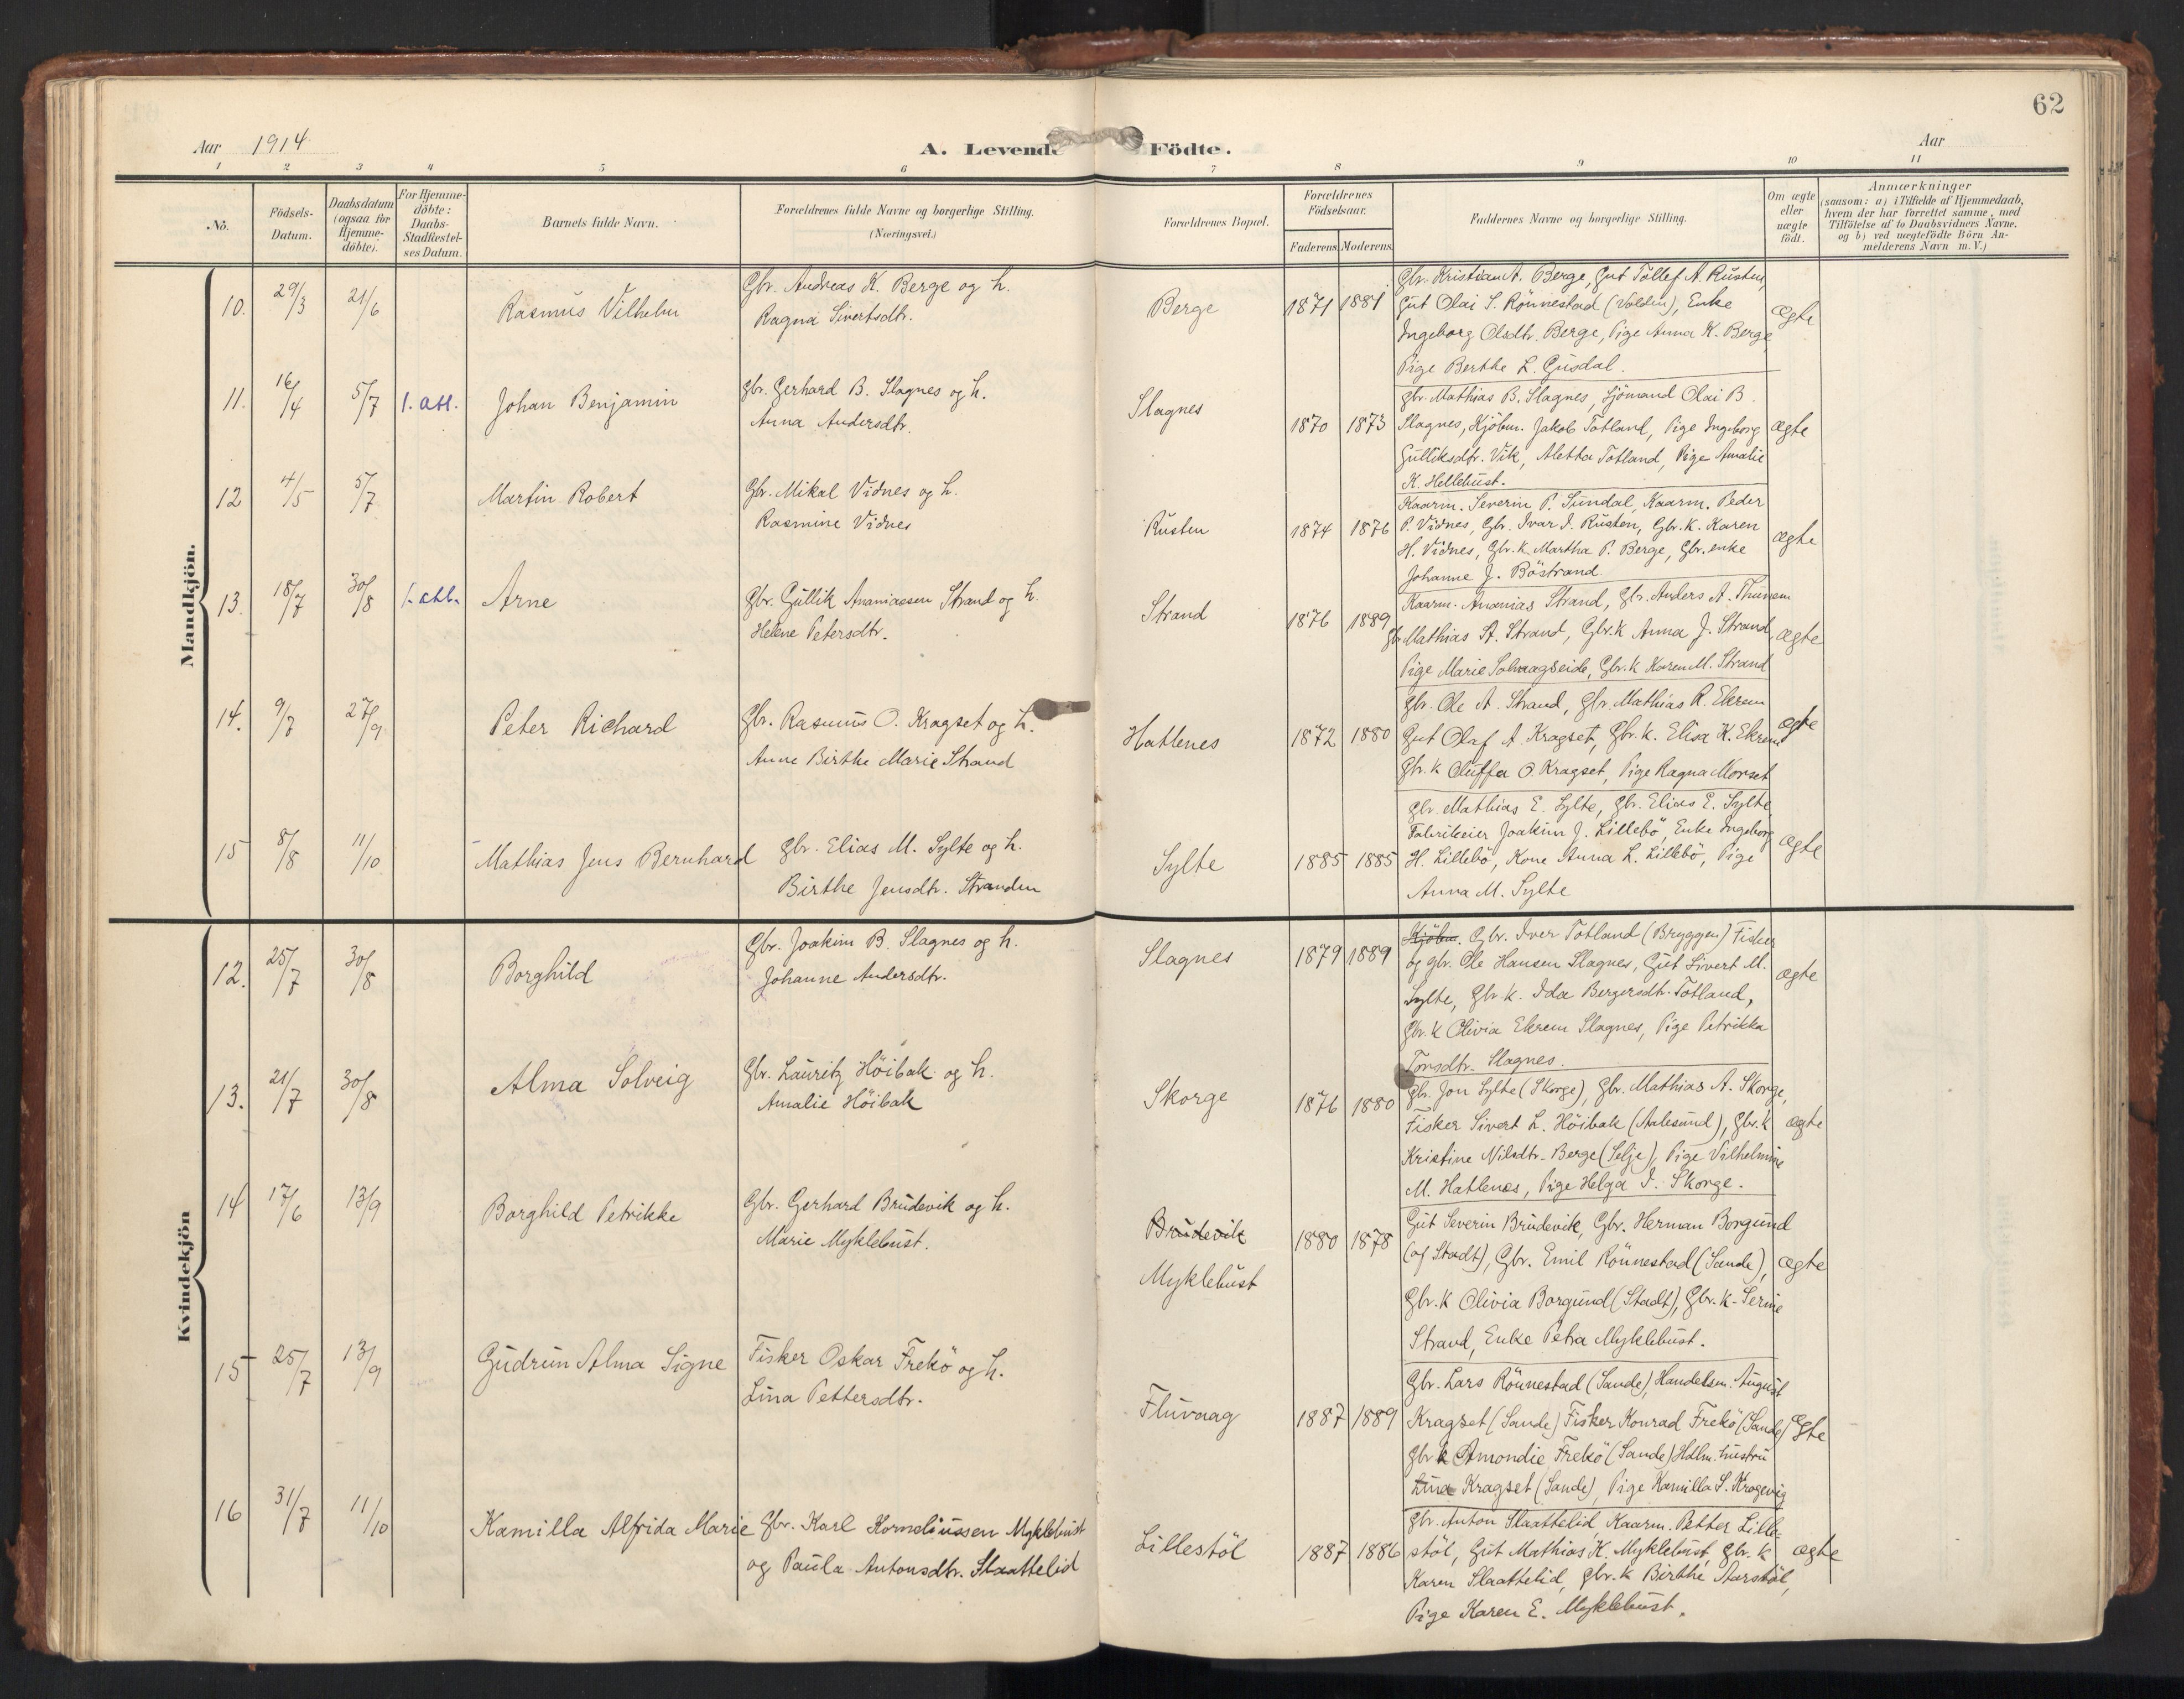 62
Aar 1914
A. Levende Födte.
Aar
1 2 3 4 5 6 7 8 9 10 11
No.
Födsels-
Datum.
Daabsdatum
(ogsaa for
Hjemme-
döbte).
For Hjemme-
döbte:
Daabs-
Stadfæstel-
ses Datum.
Barnets fulde Navn.
Forældrenes fulde Navne og borgerlige Stilling.
(Næringsvei.)
Forældrenes Bopæl.
Forældrenes
Födselsaar.
Faderens. Moderens.
Faddernes Navne og borgerlige Stilling.
Om ægte
eller
uægte
födt.
Anmærkninger
(saasom: a) i Tilfælde af Hjemmedaab,
hvem der har forrettet samme, med
Tilföielse af to Daabsvidners Navne.
og b) ved uægtefödte Börn An-
melderens Navn m. V.)
Mandkjön.
10. 29/3 21/6 Rasmus Vilhelm
Gbr. Andreas K. Berge og h.
Ragna Sivertsdtr.
Berge 1871 1881
Gbr. Kristian A. Berge, Gut Tollef A. Rusten,
Gut Olai S. Rönnestad (Volden), Enke
Ingeborg Olsdtr. Berge, Pige Anna K. Berge,
Pige Berthe L. Gusdal.
ægte
11. 16/4 5/7 f. att. Johan Benjamin
Gbr. Gerhard B. Slagnes og h.
Anna Andersdtr.
Slagnes 1870 1873
Gbr. Mathias B. Slagnes, Sjömand Olai B.
Slagnes, Kjöbm. Jakob Totland, Pige Ingeborg
Gulliksdtr. Vik, Aletta Totland, Pige Amalie
K. Hellebust.
ægte
12 4/5 5/7 Martin Robert
Gbr. Mikal Vidnes og h.
Rasmine Vidnes
Rusten 1874 1876
Kaarm. Severin P. Sundal, Kaarm. Peder
P. Vidnes, Gbr. Ivar I. Rusten, Gbr. k. Karen
H. Vidnes, Gbr. k. Martha P. Berge, Gbr. enke
Johanne J. Böstrand
ægte
13. 18/7 30/8 f. att. Arne
Gbr. Gullik Ananiassen Strand og h.
Helene Petersdtr.
Strand 1876 1889
Kaarm. Ananias Strand, Gbr. Anders A. Thunem
Gbr. Mathias A. Strand, Gbr. k Anna J. Strand,
Pige Marie Solvaagseide, Gbr. k Karen M. Strand
ægte
14. 9/7 27/9 Peter Richard
Gbr. Rasmus O. Kragset og h.
Anne Birthe Marie Strand
Hatlenes 1872 1880
Gbr. Ole A. Strand, Gbr. Mathias R. Ekrem
Gut Olaf A. Kragset, Gbr. k. Elisa K. Ekrem
Gbr. k Oluffa O. Kragset, Pige Ragna Morset
ægte
15 8/8 11/10 Mathias Jens Bernhard
Gbr. Elias M. Sylte og h.
Birthe Jensdtr. Stranden
Sylte 1885 1885
Gbr. Mathias E. Sylte, Gbr. Elias E. Sylte,
Fabrikeier Joakim J. Lillebö, Enke Ingeborg
H. Lillebö, Kone Anna L. Lillebö, Pige
Anna M. Sylte
ægte
Kvindekjön
12. 25/7 30/8 Borghild
Gbr. Joakim B. Slagnes og h.
Johanne Andersdtr.
Slagnes 1879 1889
Kjöbm. Gbr. Iver Totland (Bryggen) Fisker
og gbr. Ole Hansen Slagnes, Gut Sivert M.
Sylte, Gbr k. Ida Bergersdtr. Totland,
Gbr. k Olivia Ekrem Slagnes, Pige Petrikka
Tonsdtr. Slagnes.
ægte
13. 21/7 30/8 Alma Solveig
Gbr. Lauritz Höibak og h.
Amalie Höibak
Skorge 1876 1880
Gbr. Jon Sylte (Skorge), Gbr. Mathias A. Skorge,
Fisker Sivert L. Höibak (Aalesund), Gbr. k
Kristine Nilsdtr. Berge (Selje), Pige Vilhelmine
M. Hatlenes, Pige Helga I. Skorge.
ægte
14 17/6 13/9 Borghild Petrikke
Gbr. Gerhard Brudevik og h.
Marie Myklebust.
Brudevik
Myklebust
1880 1878
Gut Severin Brudevik, Gbr. Herman Borgund
(af Stadt), Gbr. Emil Rönnestad (Sande),
Gbr. k Olivia Borgund (Stadt), Gbr. k. Serine
Strand, Enke Petra Myklebust.
ægte
15 25/7 13/9 Gudrun Alma Signe
Fisker Oskar Frekö og h.
Lina Pettersdtr.
Fluvaag 1887 1889
Gbr. Lars Rönnestad (Sande), Handelsm. August
Kragset (Sande) Fisker Konrad Frekö (Sande)
Gbr k Amondie Frekö (Sande) Hdlm. hustru
Lina Kragset (Sande), Pige Kamilla S. Kragevig
Ægte
16 31/7 11/10 Kamilla Alfrida Marie
Gbr. Karl Korneliussen Myklebust
og Paula Antonsdtr. Slaattelid
Lillestöl 1887 1886
Gbr. Anton Slaattelid, Kaarm. Petter Lille-
stöl, Gut Mathias K. Myklebust, Gbr. k
Karen Slaattelid, Gbr. k Birthe Aarsköl,
Pige Karen E. Myklebust.
ægte